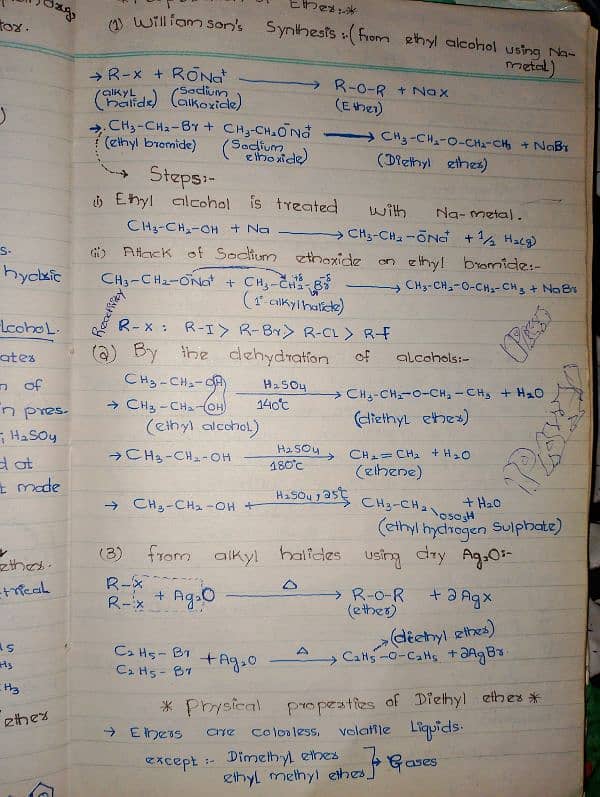 of Ether:-*
(1) Williamson's Synthesis :- (from ethyl alcohol using Na-metal)
→ R-X + RŌNa⁺ ⟶ R-O-R + NaX
(alkyl halide) (Sodium alkoxide) (Ether)
→ CH₃-CH₂-Br + CH₃-CH₂ŌNa⁺ ⟶ CH₃-CH₂-O-CH₂-CH₃ + NaBr
(ethyl bromide) (Sodium ethoxide) (Diethyl ether)
→ Steps:-
(i) Ethyl alcohol is treated with Na-metal.
CH₃-CH₂-OH + Na ⟶ CH₃-CH₂-ŌNa⁺ + 1/2 H₂(g)
(ii) Attack of Sodium ethoxide on ethyl bromide:-
CH₃-CH₂-ŌNa⁺ + CH₃-CH₂⁺ᵟ-Br⁻ᵟ ⟶ CH₃-CH₂-O-CH₂-CH₃ + NaBr
(1° alkyl halide)
Reactivity R-X : R-I > R-Br > R-CL > R-F
(2) By the dehydration of alcohols:-
CH₃-CH₂-OH
→ CH₃-CH₂-OH H₂SO₄ 140°C ⟶ CH₃-CH₂-O-CH₂-CH₃ + H₂O
(ethyl alcohol) (diethyl ether)
→ CH₃-CH₂-OH H₂SO₄ 180°C ⟶ CH₂=CH₂ + H₂O
(ethene)
→ CH₃-CH₂-OH H₂SO₄, 25°C ⟶ CH₃-CH₂ + H₂O
OSO₃H
(ethyl hydrogen Sulphate)
(3) from alkyl halides using dry Ag₂O:-
R-X
R-X + Ag₂O Δ ⟶ R-O-R + 2AgX
(ether)
(diethyl ether)
C₂H₅-Br
C₂H₅-Br + Ag₂O Δ ⟶ C₂H₅-O-C₂H₅ + 2AgBr
* Physical properties of Diethyl ether *
→ Ethers are colorless, volatile Liquids.
except :- Dimethyl ether
ethyl methyl ether ] → Gases
tor.
s.
hydric
Lcohol.
ates
n of
in pres-
; H₂SO₄
d at
t made
ether.
trical
H₃
CH₃
ether